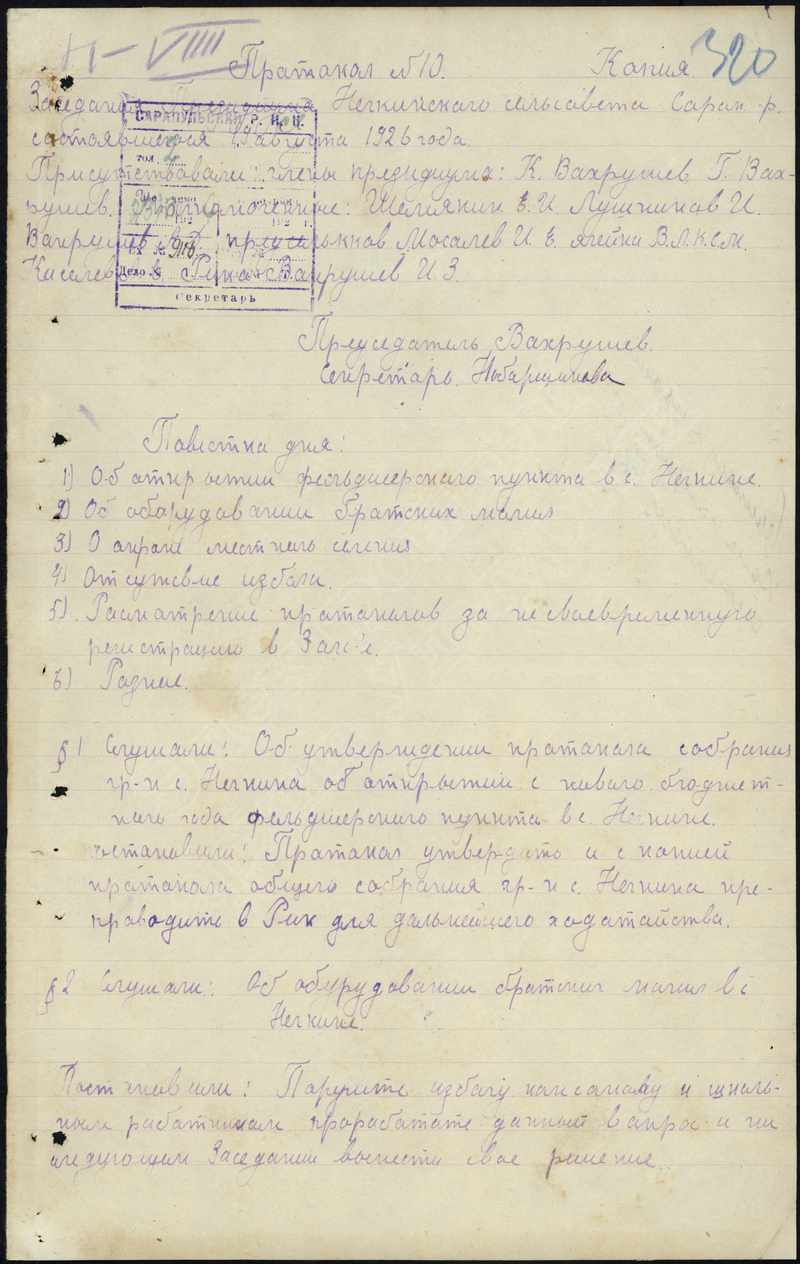 Пратакол №10. Копия. 320
Заседания Президиума Нечкинского сельсовета Сарап. р.
состоявшегося августа 1926 года.
Присутствовали: члены президиума: К. Вахрушев, Г. Вах-
рушев. Шемякин Е. И. Лушников И.
Вахрушев Мосалев И. Е. ячейки В.Л.К.С.М.
Киселев Рика Вахрушев И. З.
САРАПУЛЬСКАЯ Р. И. К.
Дело №
Секретарь
Председатель Вахрушев.
Секретарь
Повестка дня:
1) Об открытии фельдшерского пункта в с. Нечкине.
2) Об оборудовании братских могил
3) О охране местного
4) избача.
5) Расматрение пратаколов за несвоевременную
регистрацию в Заг-е.
6) Разные.
§ 1 Слушали: Об утверждении пратакола собрания
гр-н с. Нечкина об открытии с нового бюджет-
ного года фельдшерского пункта в с. Нечкине.
Постановили: Пратакол утвердить и с копией
пратакола общего собрания гр-н с. Нечкина пре-
проводить в Рик для дальнейшего ходатайства.
§ 2 Слушали: Об обурудовании братских могил в с
Нечкине.
Постановили: Поручить избачу и школь-
ным работникам проработать данный вапрос и на
следующем Заседании вынести свое решение.